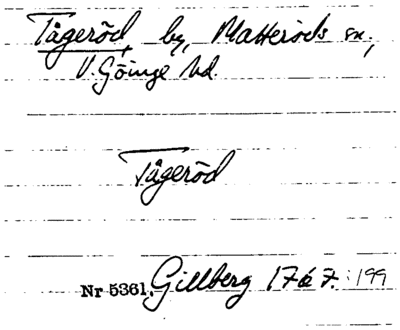 Tågeröd, by, Matteröds sn,
V. Göinge hd.
Tågeröd
Nr 5361. Gillberg 1767 :199